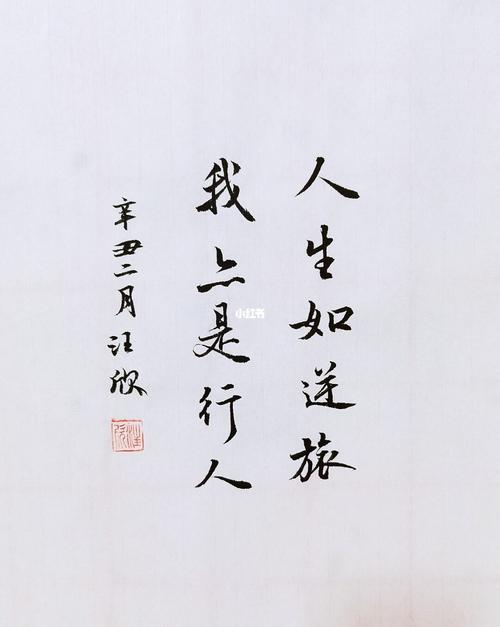 人生如逆旅
我亦是行人
辛丑二月汪欣
小红书